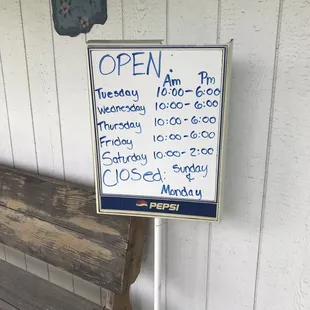 OPEN:
Am Pm
Tuesday 10:00-6:00
Wednesday 10:00-6:00
Thursday 10:00-6:00
Friday 10:00-6:00
Saturday 10:00-2:00
Closed: Sunday
&
Monday
PEPSI